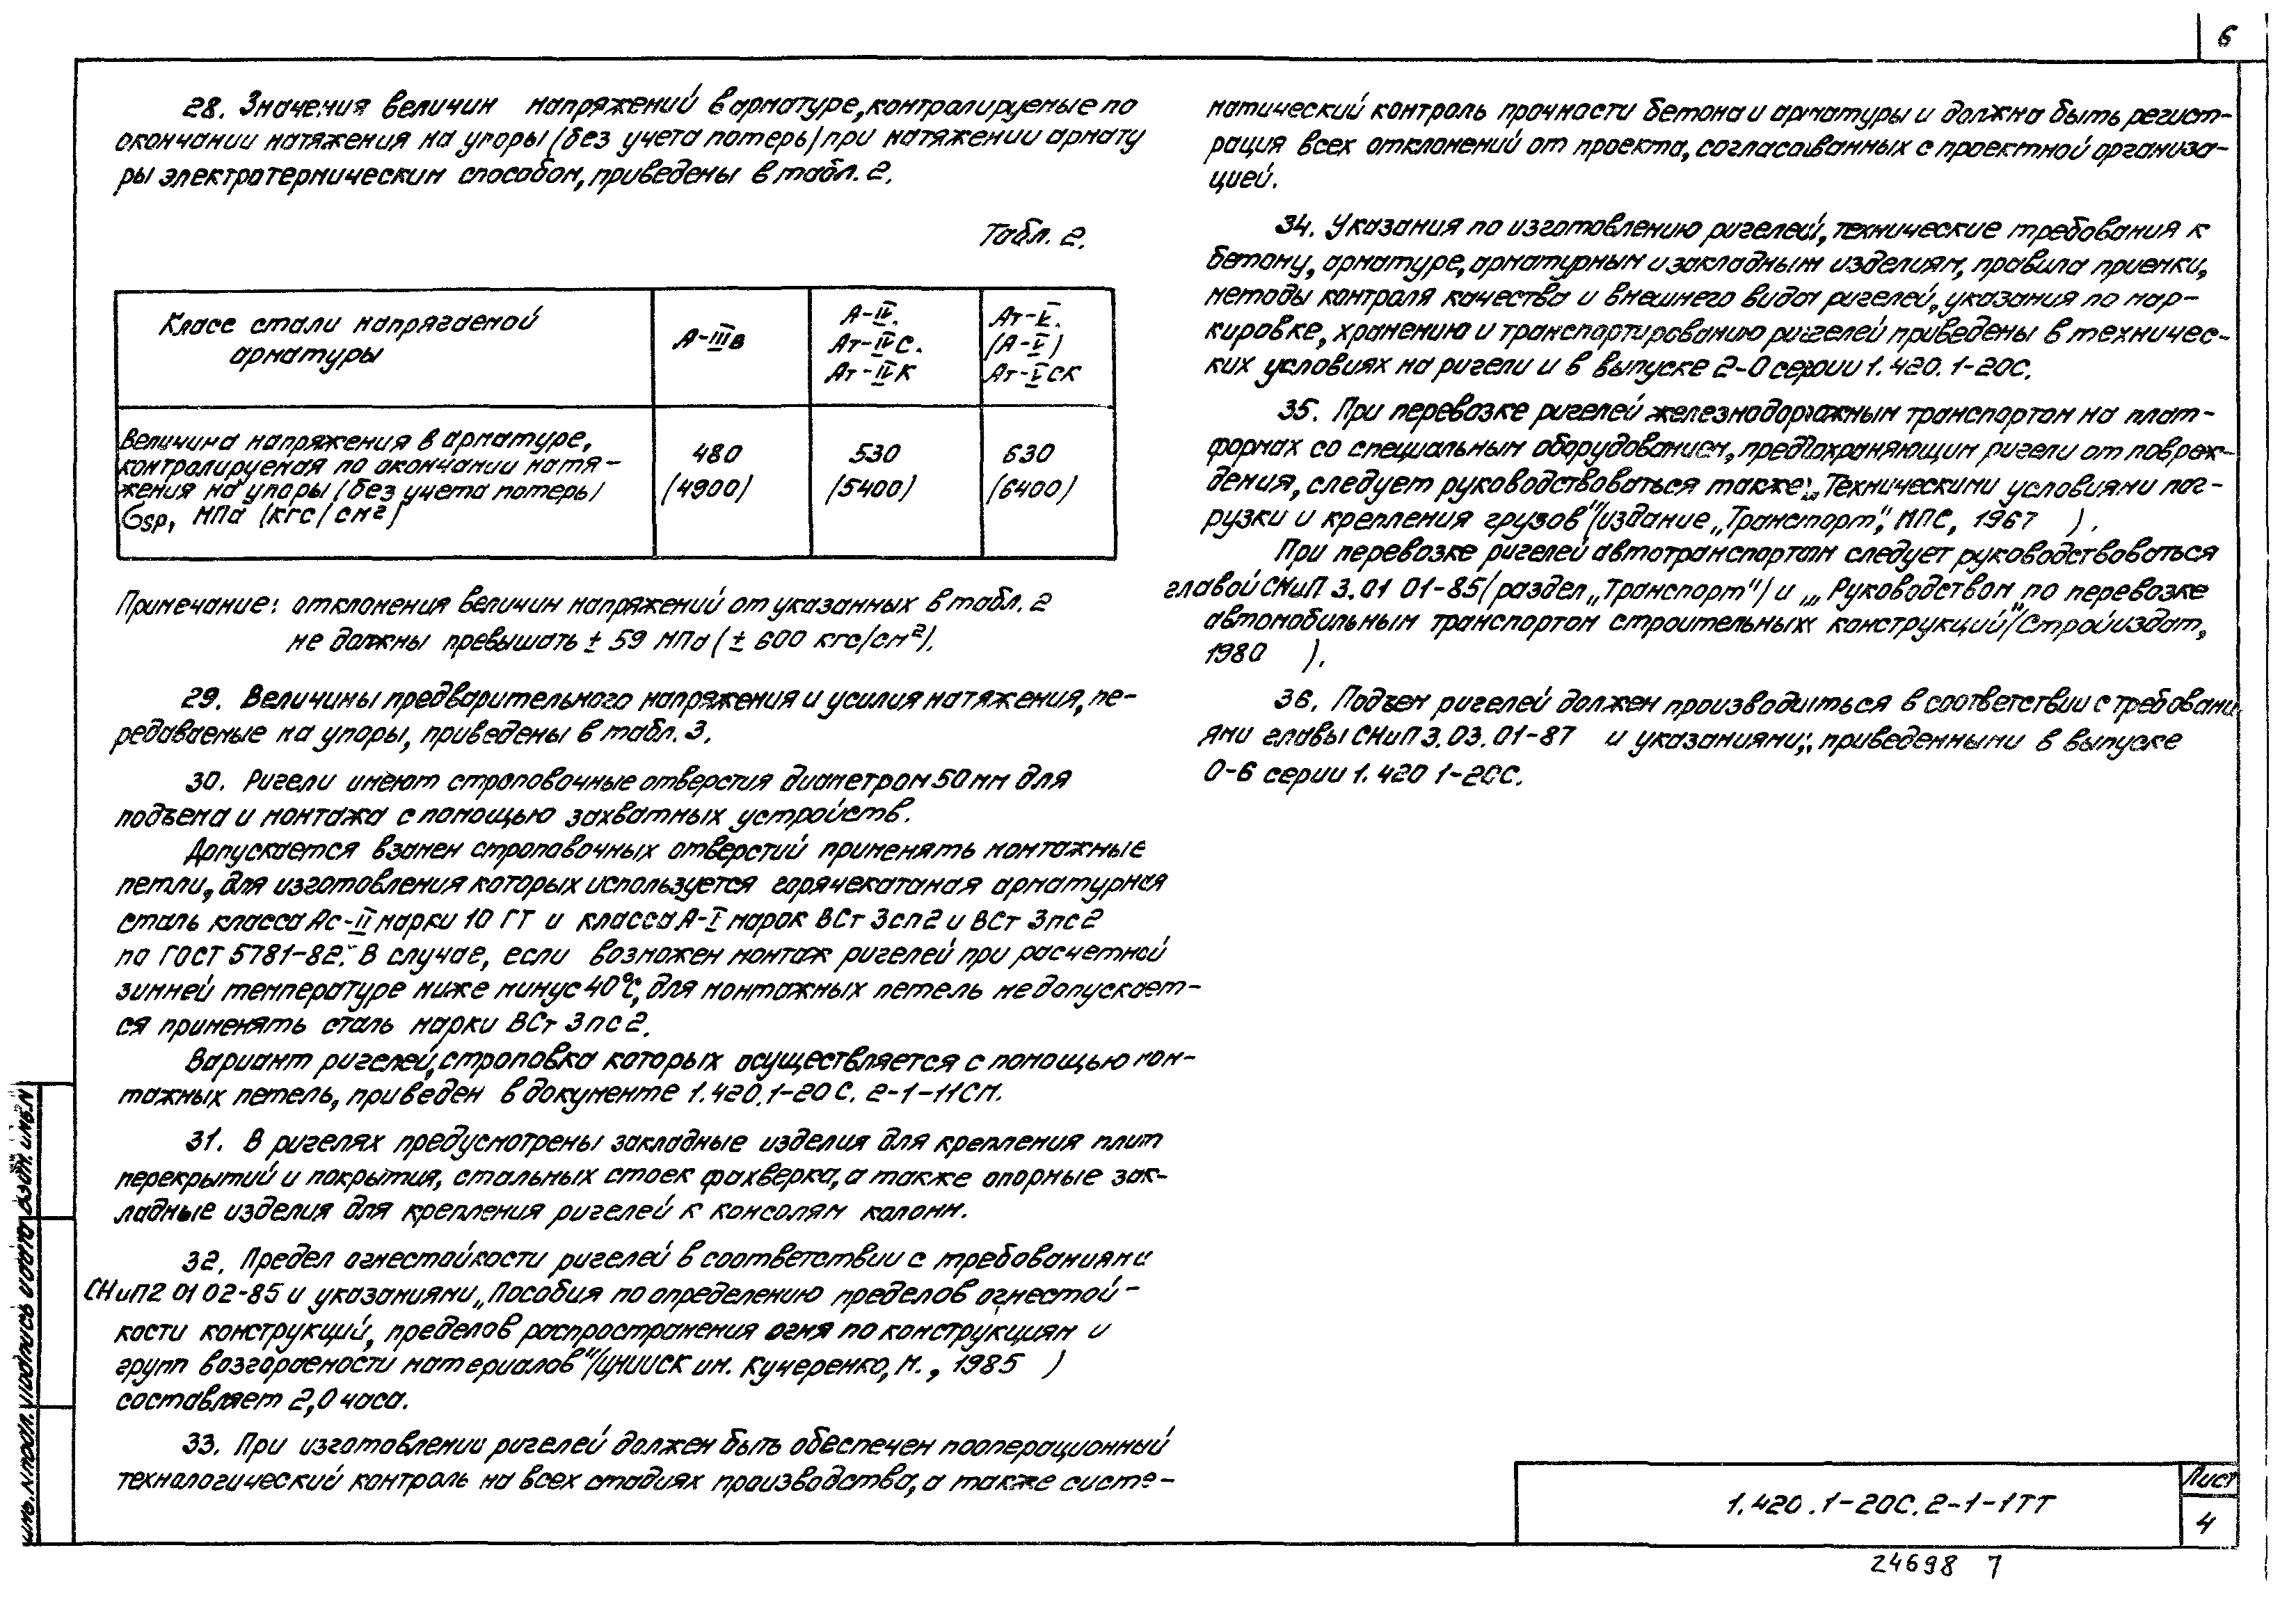 6
28. Значения величин напряжений в арматуре, контролируемые по
окончании натяжения на упоры (без учета потерь) при натяжении армату
ры электротермическим способом, приведены в табл. 2.
Табл. 2.
Класс стали напрягаемой
арматуры
А-IIIв
А-IV.
Ат-IVС.
Ат-IVК
Ат-V.
(А-V)
Ат-VСК
Величина напряжения в арматуре,
контролируемая по окончании натя-
жения на упоры (без учета потерь)
σsp, МПа (кгс/см2)
480
(4900)
530
(5400)
630
(6400)
Примечание: отклонения величин напряжений от указанных в табл. 2
не должны превышать ± 59 МПа (± 600 кгс/см²).
29. Величины предварительного напряжения и усилия натяжения, пе-
редаваемые на упоры, приведены в табл. 3.
30. Ригели имеют строповочные отверстия диаметром 50 мм для
подъема и монтажа с помощью захватных устройств.
Допускается взамен строповочных отверстий применять монтажные
петли, для изготовления которых используется горячекатаная арматурная
сталь класса Ас-II марки 10 ГТ и класса А-I марок ВСт 3сп2 и ВСт 3пс2
по ГОСТ 5781-82. В случае, если возможен монтаж ригелей при расчетной
зимней температуре ниже минус 40°С, для монтажных петель не допускает-
ся применять сталь марки ВСт 3пс2.
Вариант ригелей, строповка которых осуществляется с помощью мон-
тажных петель, приведен в документе 1.420.1-20С. 2-1-11СМ.
31. В ригелях предусмотрены закладные изделия для крепления плит
перекрытий и покрытия, стальных стоек фахверка, а также опорные зак-
ладные изделия для крепления ригелей к консолям колонн.
32. Предел огнестойкости ригелей в соответствии с требованиями
СНиП2 01 02-85 и указаниями „Пособия по определению пределов огнестой-
кости конструкций, пределов распространения огня по конструкциям и
групп возгораемости материалов" (ЦНИИСК им. Кучеренко, М., 1985 )
составляет 2,0 часа.
33. При изготовлении ригелей должен быть обеспечен пооперационный
технологический контроль на всех стадиях производства, а также систе-
матический контроль прочности бетона и арматуры и должна быть регист-
рация всех отклонений от проекта, согласованных с проектной организа-
цией.
34. Указания по изготовлению ригелей, технические требования к
бетону, арматуре, арматурным и закладным изделиям, правила приемки,
методы контроля качества и внешнего вида ригелей, указания по мар-
кировке, хранению и транспортированию ригелей приведены в техничес-
ких условиях на ригели и в выпуске 2-0 серии 1.420.1-20С.
35. При перевозке ригелей железнодорожным транспортом на плат-
формах со специальным оборудованием, предохраняющим ригели от повреж-
дения, следует руководствоваться также „Техническими условиями пог-
рузки и крепления грузов" (издание „Транспорт", МПС, 1967 ).
При перевозке ригелей автотранспортом следует руководствоваться
главой СНиП 3.01 01-85 (раздел „Транспорт") и „Руководством по перевозке
автомобильным транспортом строительных конструкций" (Стройиздат,
1980 ).
36. Подъем ригелей должен производиться в соответствии с требовани
ями главы СНиП 3.03.01-87 и указаниями, приведенными в выпуске
0-6 серии 1.420 1-20С.
Инв. N подл. Подпись и дата Взам. инв. N
1.420.1-20С.2-1-1ТТ
Лист
4
24698 7